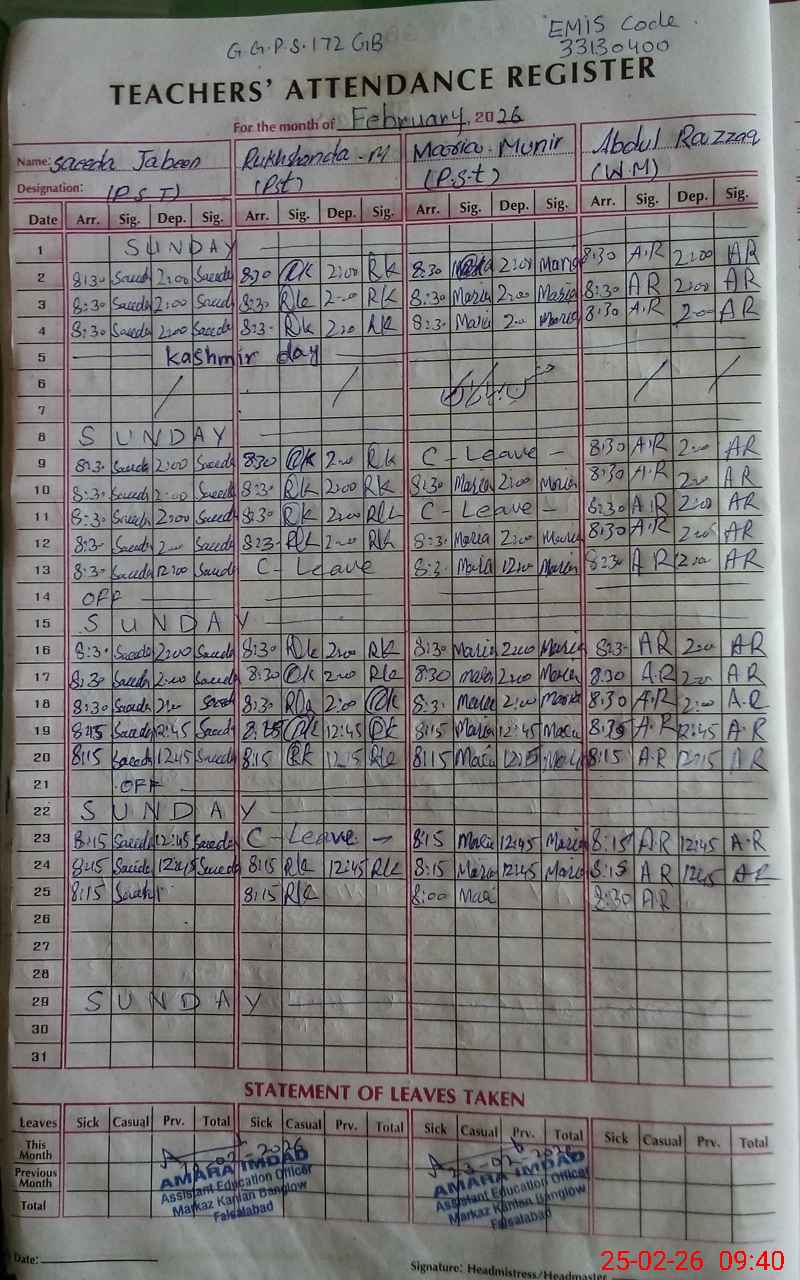 G.G.P.S. 172 GB
EMIS Code
33130400
TEACHERS' ATTENDANCE REGISTER
For the month of February, 2026
Name: Saeeda Jabeen Rukhshanda Maria Munir Abdul Razzaq
Designation: (P.S.T) (Pst) (P.S.t) (W.M)
Date Arr. Sig. Dep. Sig. Arr. Sig. Dep. Sig. Arr. Sig. Dep. Sig. Arr. Sig. Dep. Sig.
1 SUNDAY 8:30 A.R 2:00 AR
2 8:30 Saeeda 2:00 Saeeda 830 RK 2:00 RK 8:30 Maria 2:00 Maria 8:30 AR 2:00 AR
3 8:30 Saeeda 2:00 Saeeda 8:30 RK 2:00 RK 8:30 Maria 2:00 Maria 8:30 A.R 2:00 AR
4 8:30 Saeeda 2:00 Saeeda 8:3- RK 2:00 RK 8:3- Maria 2:00 Maria
5 Kashmir day
6
7
8 SUNDAY
9 8:3- Saeeda 2:00 Saeeda 830 RK 2:00 RK C-Leave - 8:30 A.R 2:00 AR
10 8:3- Saeeda 2:00 Saeeda 8:3- RK 2:00 RK 8:30 Maria 2:00 Maria 8:30 A.R 2:00 AR
11 8:3- Saeeda 2:00 Saeeda 8:30 RK 2:00 RK C-Leave - 8:30 A.R 2:00 AR
12 8:3- Saeeda 2:00 Saeeda 8:3- RK 2:00 RK 8:3- Maria 2:00 Maria 8:30 A.R 2:00 AR
13 8:3- Saeeda 12:00 Saeeda C-Leave 8:3- Maria 12:00 Maria 8:30 AR 12:00 AR
14 OFF
15 SUNDAY
16 8:3- Saeeda 2:00 Saeeda 8:30 RK 2:00 RK 8:30 Maria 2:00 Maria 8:3- AR 2:00 AR
17 8:30 Saeeda 2:00 Saeeda 8:30 RK 2:00 RK 8:30 Maria 2:00 Maria 8:30 A.R 2:00 AR
18 8:30 Saeeda 2:00 Saeeda 8:30 RK 2:00 RK 8:3- Maria 2:00 Maria 8:30 A.R 2:00 A.R
19 8:15 Saeeda 12:45 Saeeda 8:15 RK 12:45 RK 8:15 Maria 12:45 Maria A.R 12:45 A.R
20 8:15 Saeeda 12:45 Saeeda 8:15 RK 12:15 RK 8:15 Maria 12:15 8:15 A.R 12:15 AR
21 OFF
22 SUNDAY
23 8:15 Saeeda 12:45 Saeeda C-Leave - 8:15 Maria 12:45 Maria 8:15 AR 12:45 A.R
24 8:15 Saeeda 12:45 Saeeda 8:15 RK 12:45 RK 8:15 Maria 12:45 Maria 8:15 AR 12:45 AR
25 8:15 8:15 RK 8:00 Maria 8:30 AR
26
27
28
29 SUNDAY
30
31
STATEMENT OF LEAVES TAKEN
Leaves Sick Casual Prv. Total Sick Casual Prv. Total Sick Casual Prv. Total Sick Casual Prv. Total
This Month
Previous Month
Total
AMARA IMDAD
Assistant Education Officer
Markaz Kanian Banglow
Faisalabad
23-02-2026
AMARA IMDAD
Assistant Education Officer
Markaz Kanian Banglow
Faisalabad
Date:
Signature: Headmistress/Headmaster
25-02-26 09:40